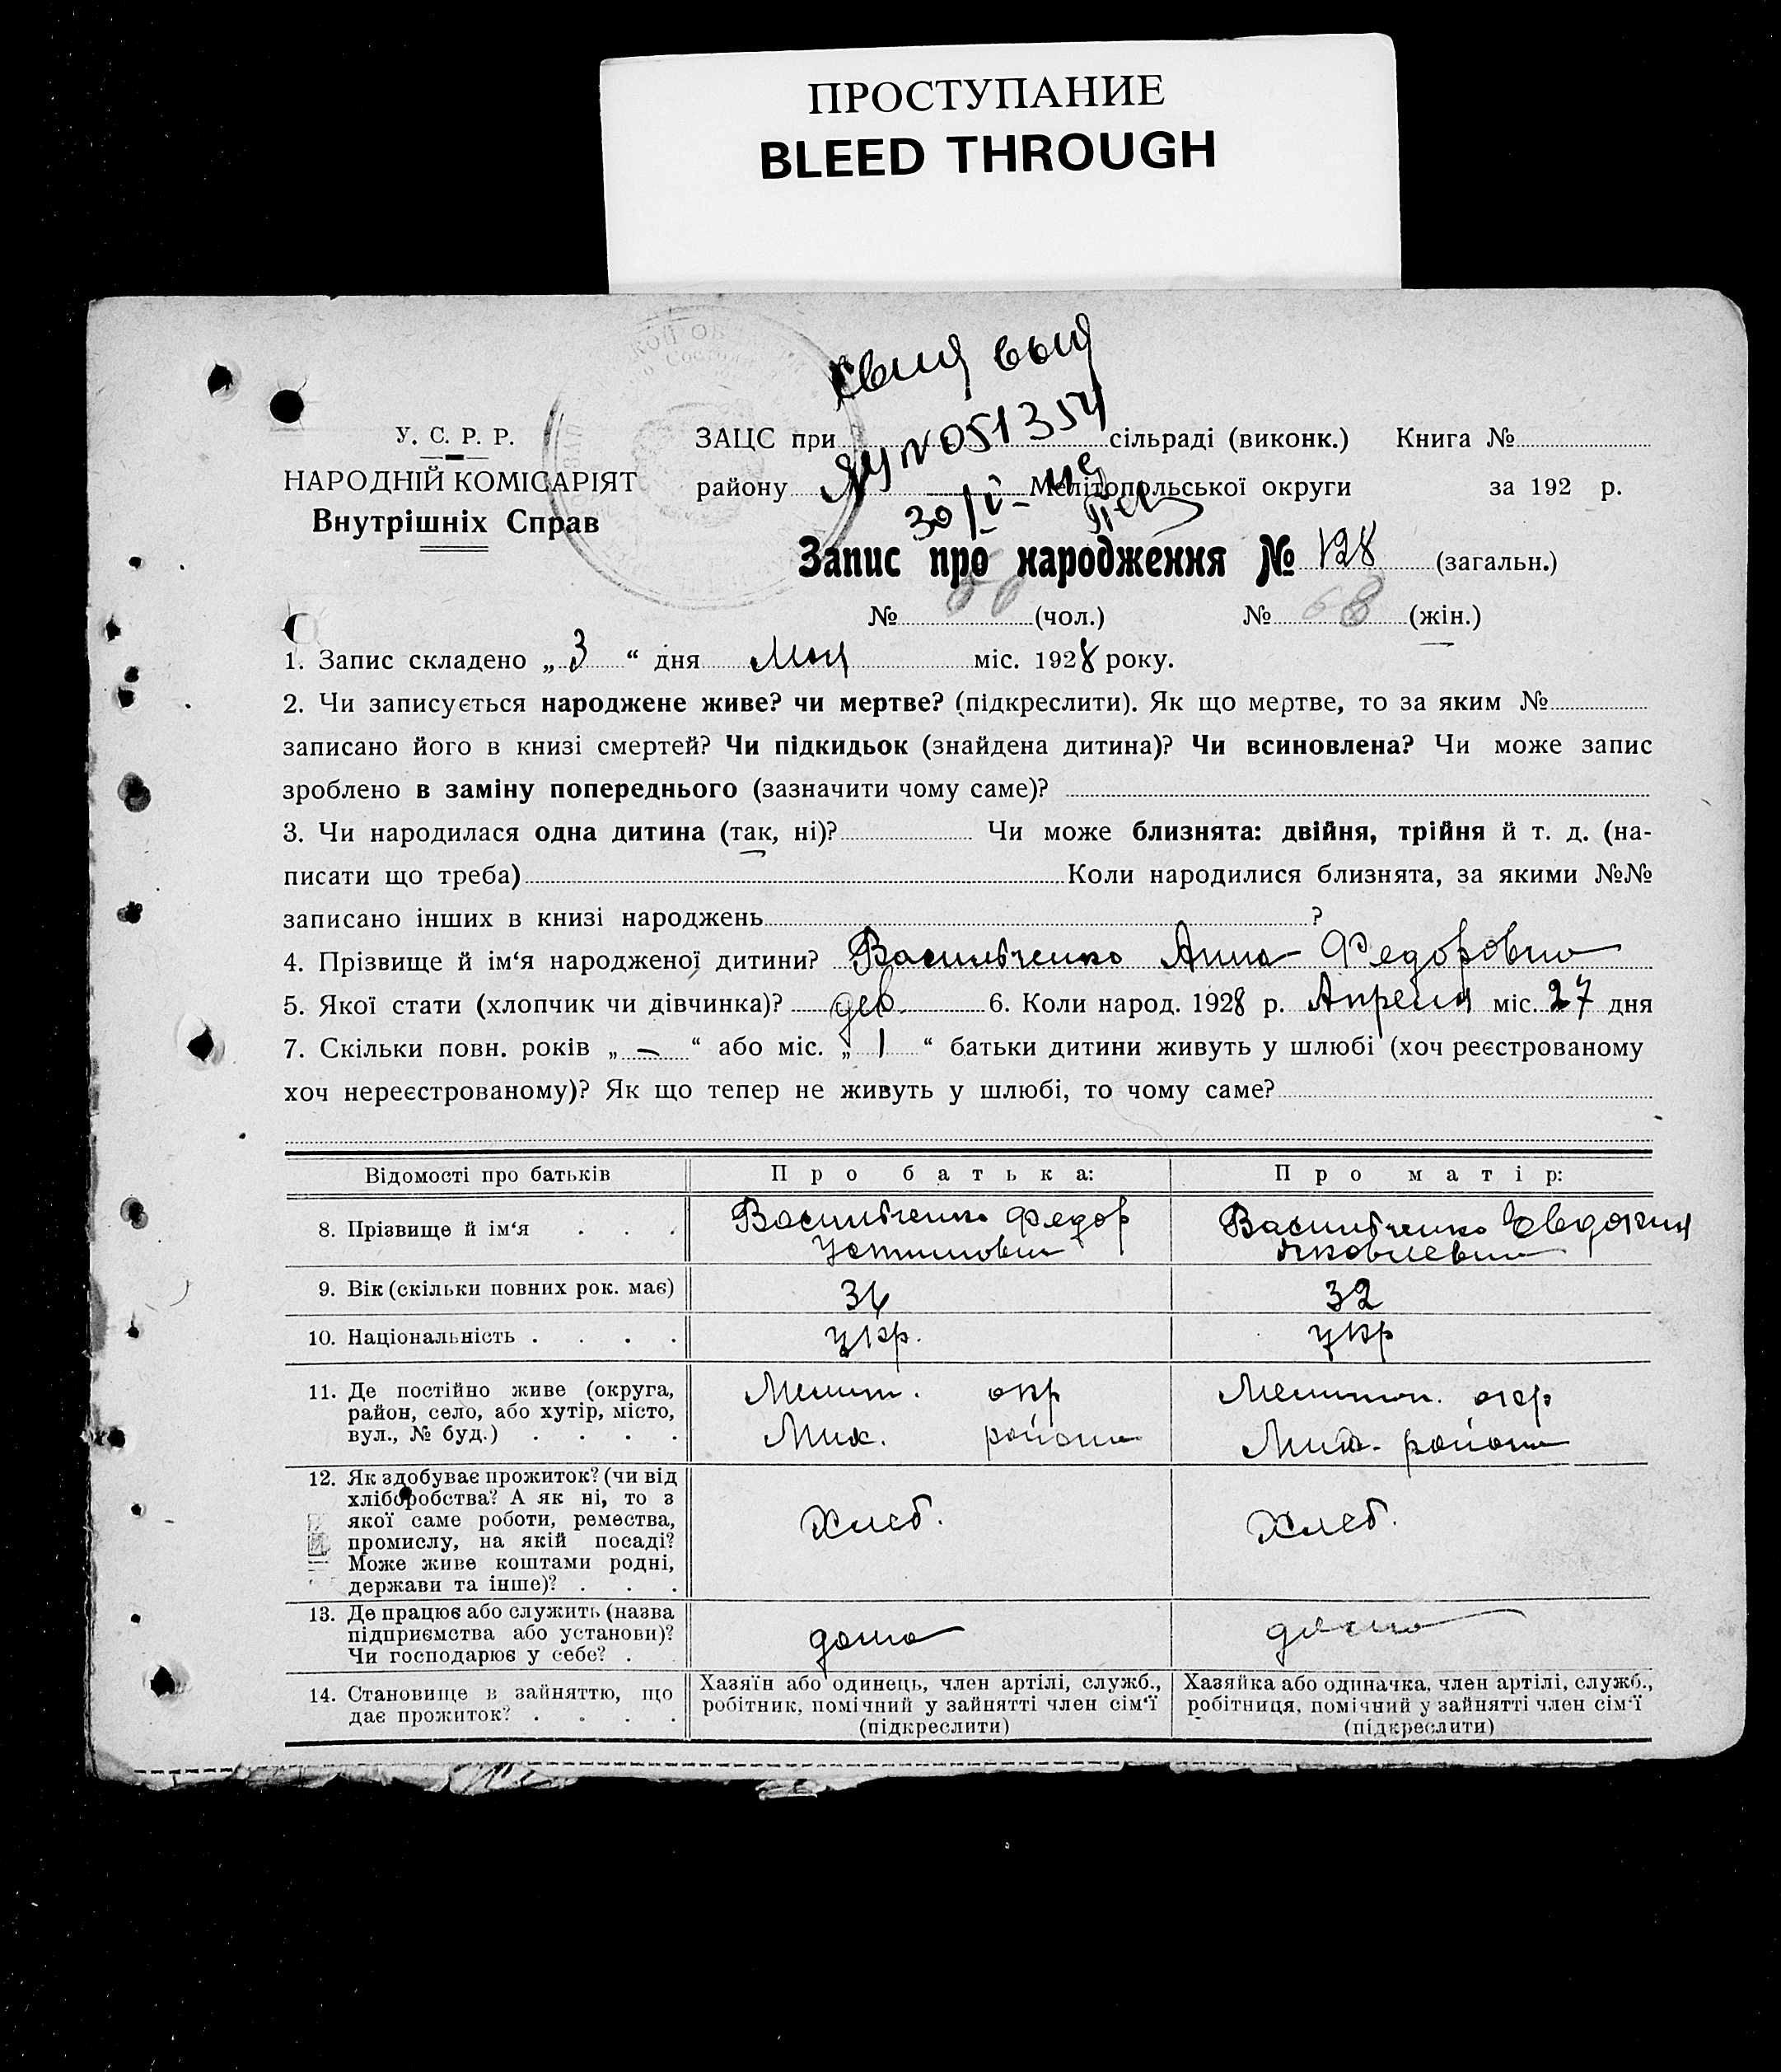 ПРОСТУПАНИЕ
BLEED THROUGH
У. С. Р. Р.
НАРОДНІЙ КОМІСАРІЯТ
Внутрішніх Справ
свид выд
ЯУ № 051354
30/V-
ЗАЦС при сільраді (виконк.) Книга №
району Мелітопольської округи за 192 р.
Запис про народження № 128 (загальн.)
№ (чол.) № 68 (жін.)
1. Запис складено „ 3 “ дня Мая міс. 1928 року.
2. Чи записується народжене живе? чи мертве? (підкреслити). Як що мертве, то за яким №
записано його в книзі смертей? Чи підкидьок (знайдена дитина)? Чи всиновлена? Чи може запис
зроблено в заміну попереднього (зазначити чому саме)?
3. Чи народилася одна дитина (так, ні)? Чи може близнята: двійня, трійня й т. д. (на-
писати що треба) Коли народилися близнята, за якими №№
записано інших в книзі народжень ?
4. Прізвище й ім‘я народженої дитини? Васильченко Анна Федоровна
5. Якої стати (хлопчик чи дівчинка)? дев. 6. Коли народ. 1928 р. Апреля міс. 27 дня
7. Скільки повн. років „ — “ або міс. „ 1 “ батьки дитини живуть у шлюбі (хоч реєстрованому
хоч нереєстрованому)? Як що тепер не живуть у шлюбі, то чому саме?
Відомості про батьків Про батька: Про матір:
8. Прізвище й ім‘я . . . Васильченко Федор Устинович Васильченко Евдокия Яковлевна
9. Вік (скільки повних рок. має) 34 32
10. Національність . . . . укр. укр
11. Де постійно живе (округа,
район, село, або хутір, місто,
вул., № буд.) . . . .
Мелит. окр
Мих. района
Мелитоп. окр
Мих. района
12. Як здобуває прожиток? (чи від
хліборобства? А як ні, то з
якої саме роботи, ремества,
промислу, на якій посаді?
Може живе коштами родні,
держави та інше)? . . .
Хлеб.
Хлеб.
13. Де працює або служить (назва
підприємства або установи)?
Чи господарює у себе? .
дома
дома
14. Становище в зайняттю, що
дає прожиток? . . . .
Хазяїн або одинець, член артілі, служб.,
робітник, помічний у зайнятті член сім‘ї
(підкреслити)
Хазяйка або одиначка, член артілі, служб.,
робітниця, помічний у зайнятті член сім‘ї
(підкреслити)